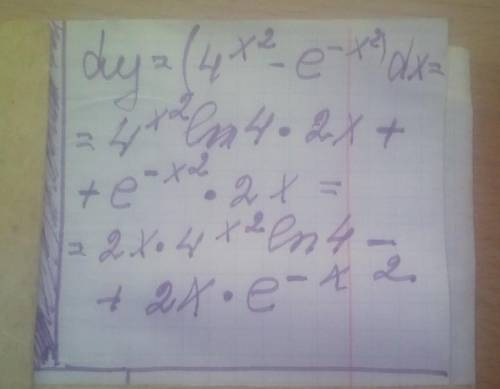 dy = (4^{x^2} - e^{-x^2}) dx =
= 4^{x^2} ln 4 · 2x +
+ e^{-x^2} · 2x =
= 2x · 4^{x^2} ln 4 -
+ 2x · e^{-x^2}